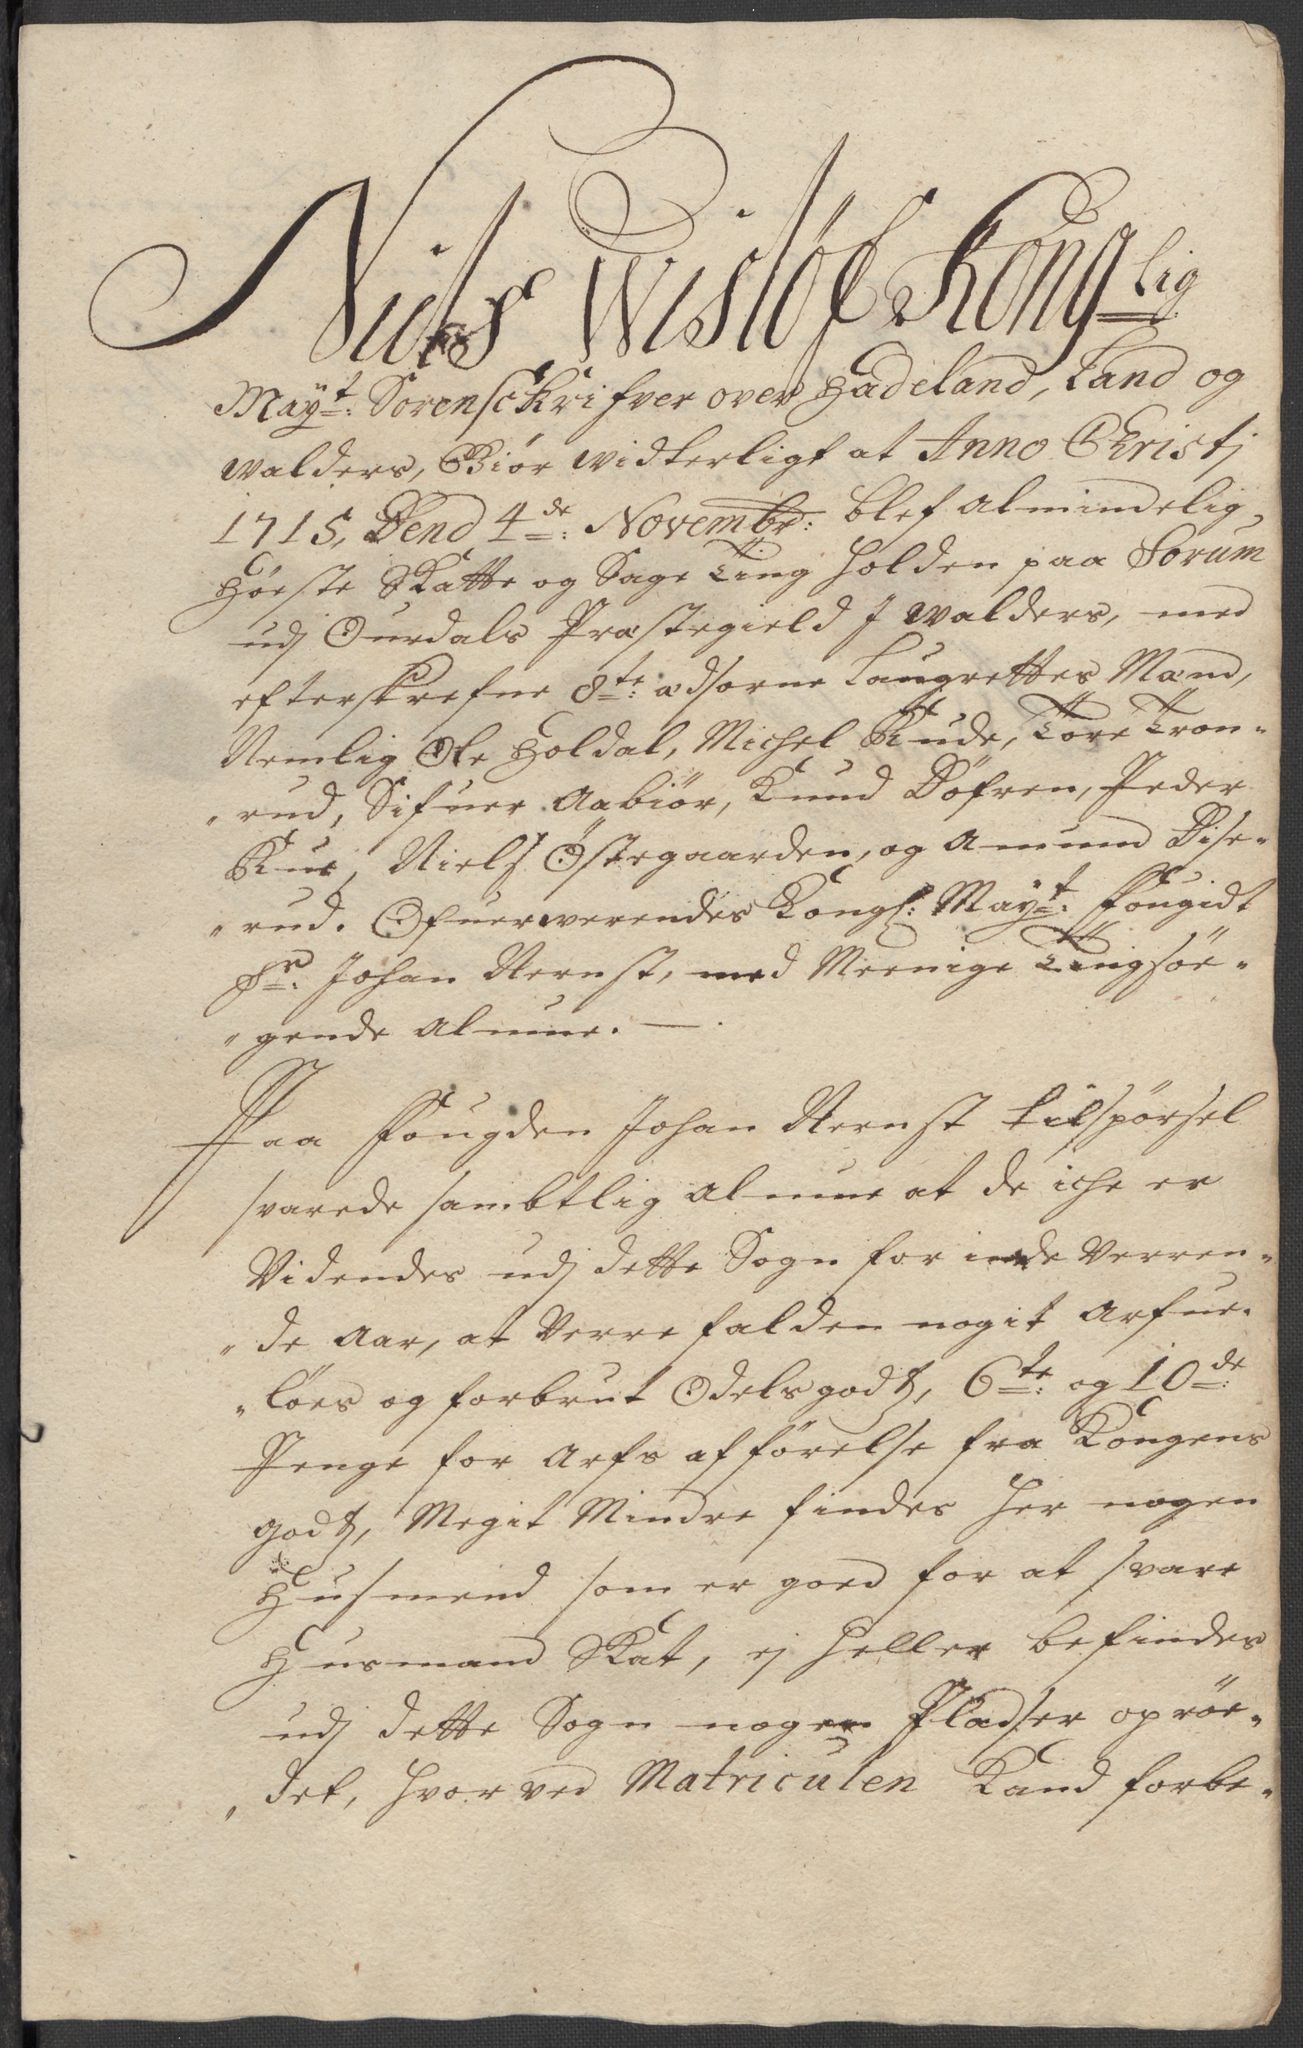 Niels Wisløf Kong lig
Mayt: Sorenschrifver over Hadeland, Land og
walders, Giør widterligt at Anno Christj
1715, Dend 4de: Novembr: blef almindelig
Høeste Skatte og Sage Ting holden paa Sorum
udj Ourdals Præstegield J walders, med
efterskrefne 8te: ædsorne Laugrettes Mænd,
Nemlig Ole Holdal, Michel Rude, Tore Tron-
"rud, Sifuer Aabiør, Knud Døfren, Peder
Rue, Niels Østegaarden, og Amund Dise-
"rud. Ofuerwerendes Kongl: Mayt: Fougidt
Sr: Johan Nernst, med Meenige Tingsøe-
"gende Almue. —
Paa Fougden Johan Nernst tilspørsel
svarede sambtlig Almue at de iche er
Videndes udj dette Sogn for inde Verren-
"de Aar, at Verre falden nogit Arfue-
"løes og forbrut Odelsgodz, 6te: og 10de:
Penge for Arfs afførelse fra Kongens
godz, Megit Mindre findes her nogen
Husmend som er goed for at svare
Husmand Skat, ej heller befindes
udj dette Sogn nogen Pladser oprøe-
"det, hvor ved Matriculen Kand forbe-